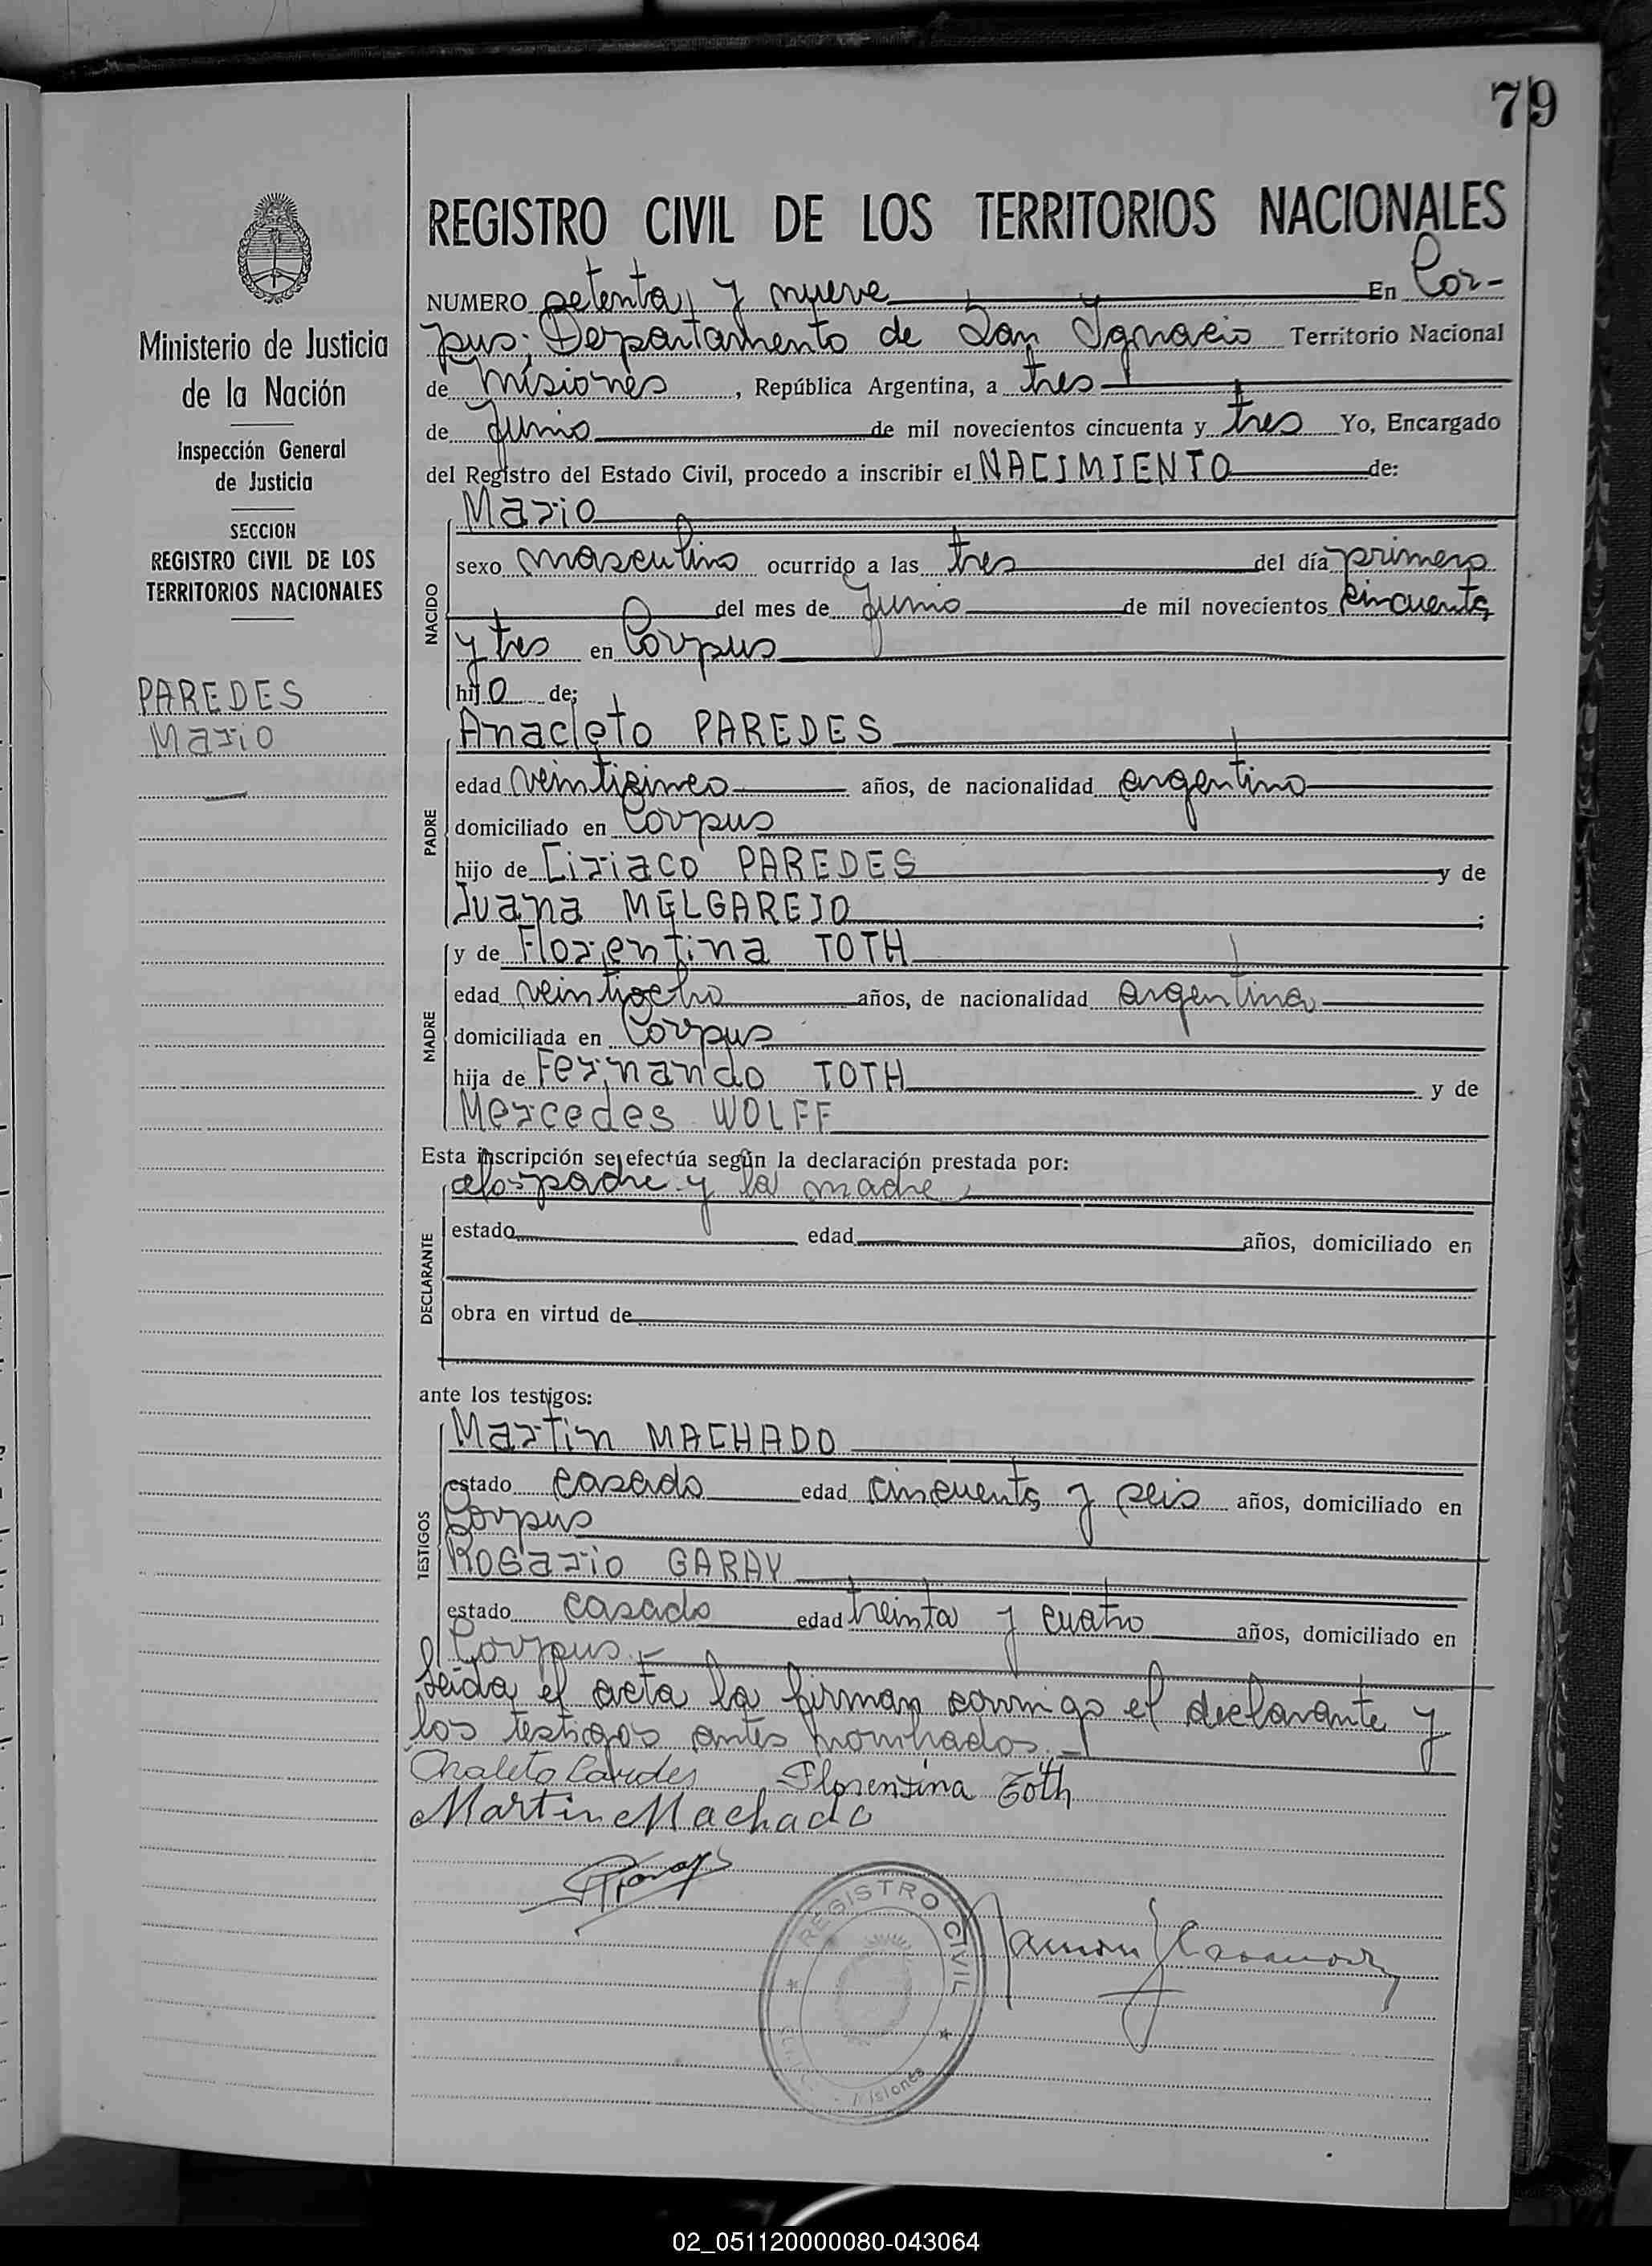 79
Ministerio de Justicia
de la Nación
Inspección General
de Justicia
SECCION
REGISTRO CIVIL DE LOS
TERRITORIOS NACIONALES
PAREDES
Mario
REGISTRO CIVIL DE LOS TERRITORIOS NACIONALES
NUMERO setenta y nueve En Cor-
pus; Departamento de San Ignacio Territorio Nacional
de Misiones, República Argentina, a tres
de Junio de mil novecientos cincuenta y tres Yo, Encargado
del Registro del Estado Civil, procedo a inscribir el NACIMIENTO de:
NACIDO
Mario
sexo masculino ocurrido a las tres del día primero
del mes de Junio de mil novecientos cincuenta
y tres en Corpus
hijo de;
PADRE
Anacleto PAREDES
edad veinticinco años, de nacionalidad argentino
domiciliado en Corpus
hijo de Ciriaco PAREDES y de
Juana MELGAREJO;
MADRE
y de Florentina TOTH
edad veintiocho años, de nacionalidad argentina
domiciliada en Corpus
hija de Fernando TOTH y de
Mercedes WOLFF
Esta inscripción se efectúa según la declaración prestada por:
DECLARANTE
padre y la madre
estado edad años, domiciliado en
obra en virtud de
ante los testigos:
TESTIGOS
Martin MACHADO
estado casado edad cincuenta y seis años, domiciliado en
Corpus
Rosario GARAY
estado casado edad treinta y cuatro años, domiciliado en
Corpus.-
Leida el acta la firman conmigo el declarante y
los testigos antes nombrados.-
Florentina Toth
Martin Machado
REGISTRO CIVIL
Misiones
02_051120000080-043064